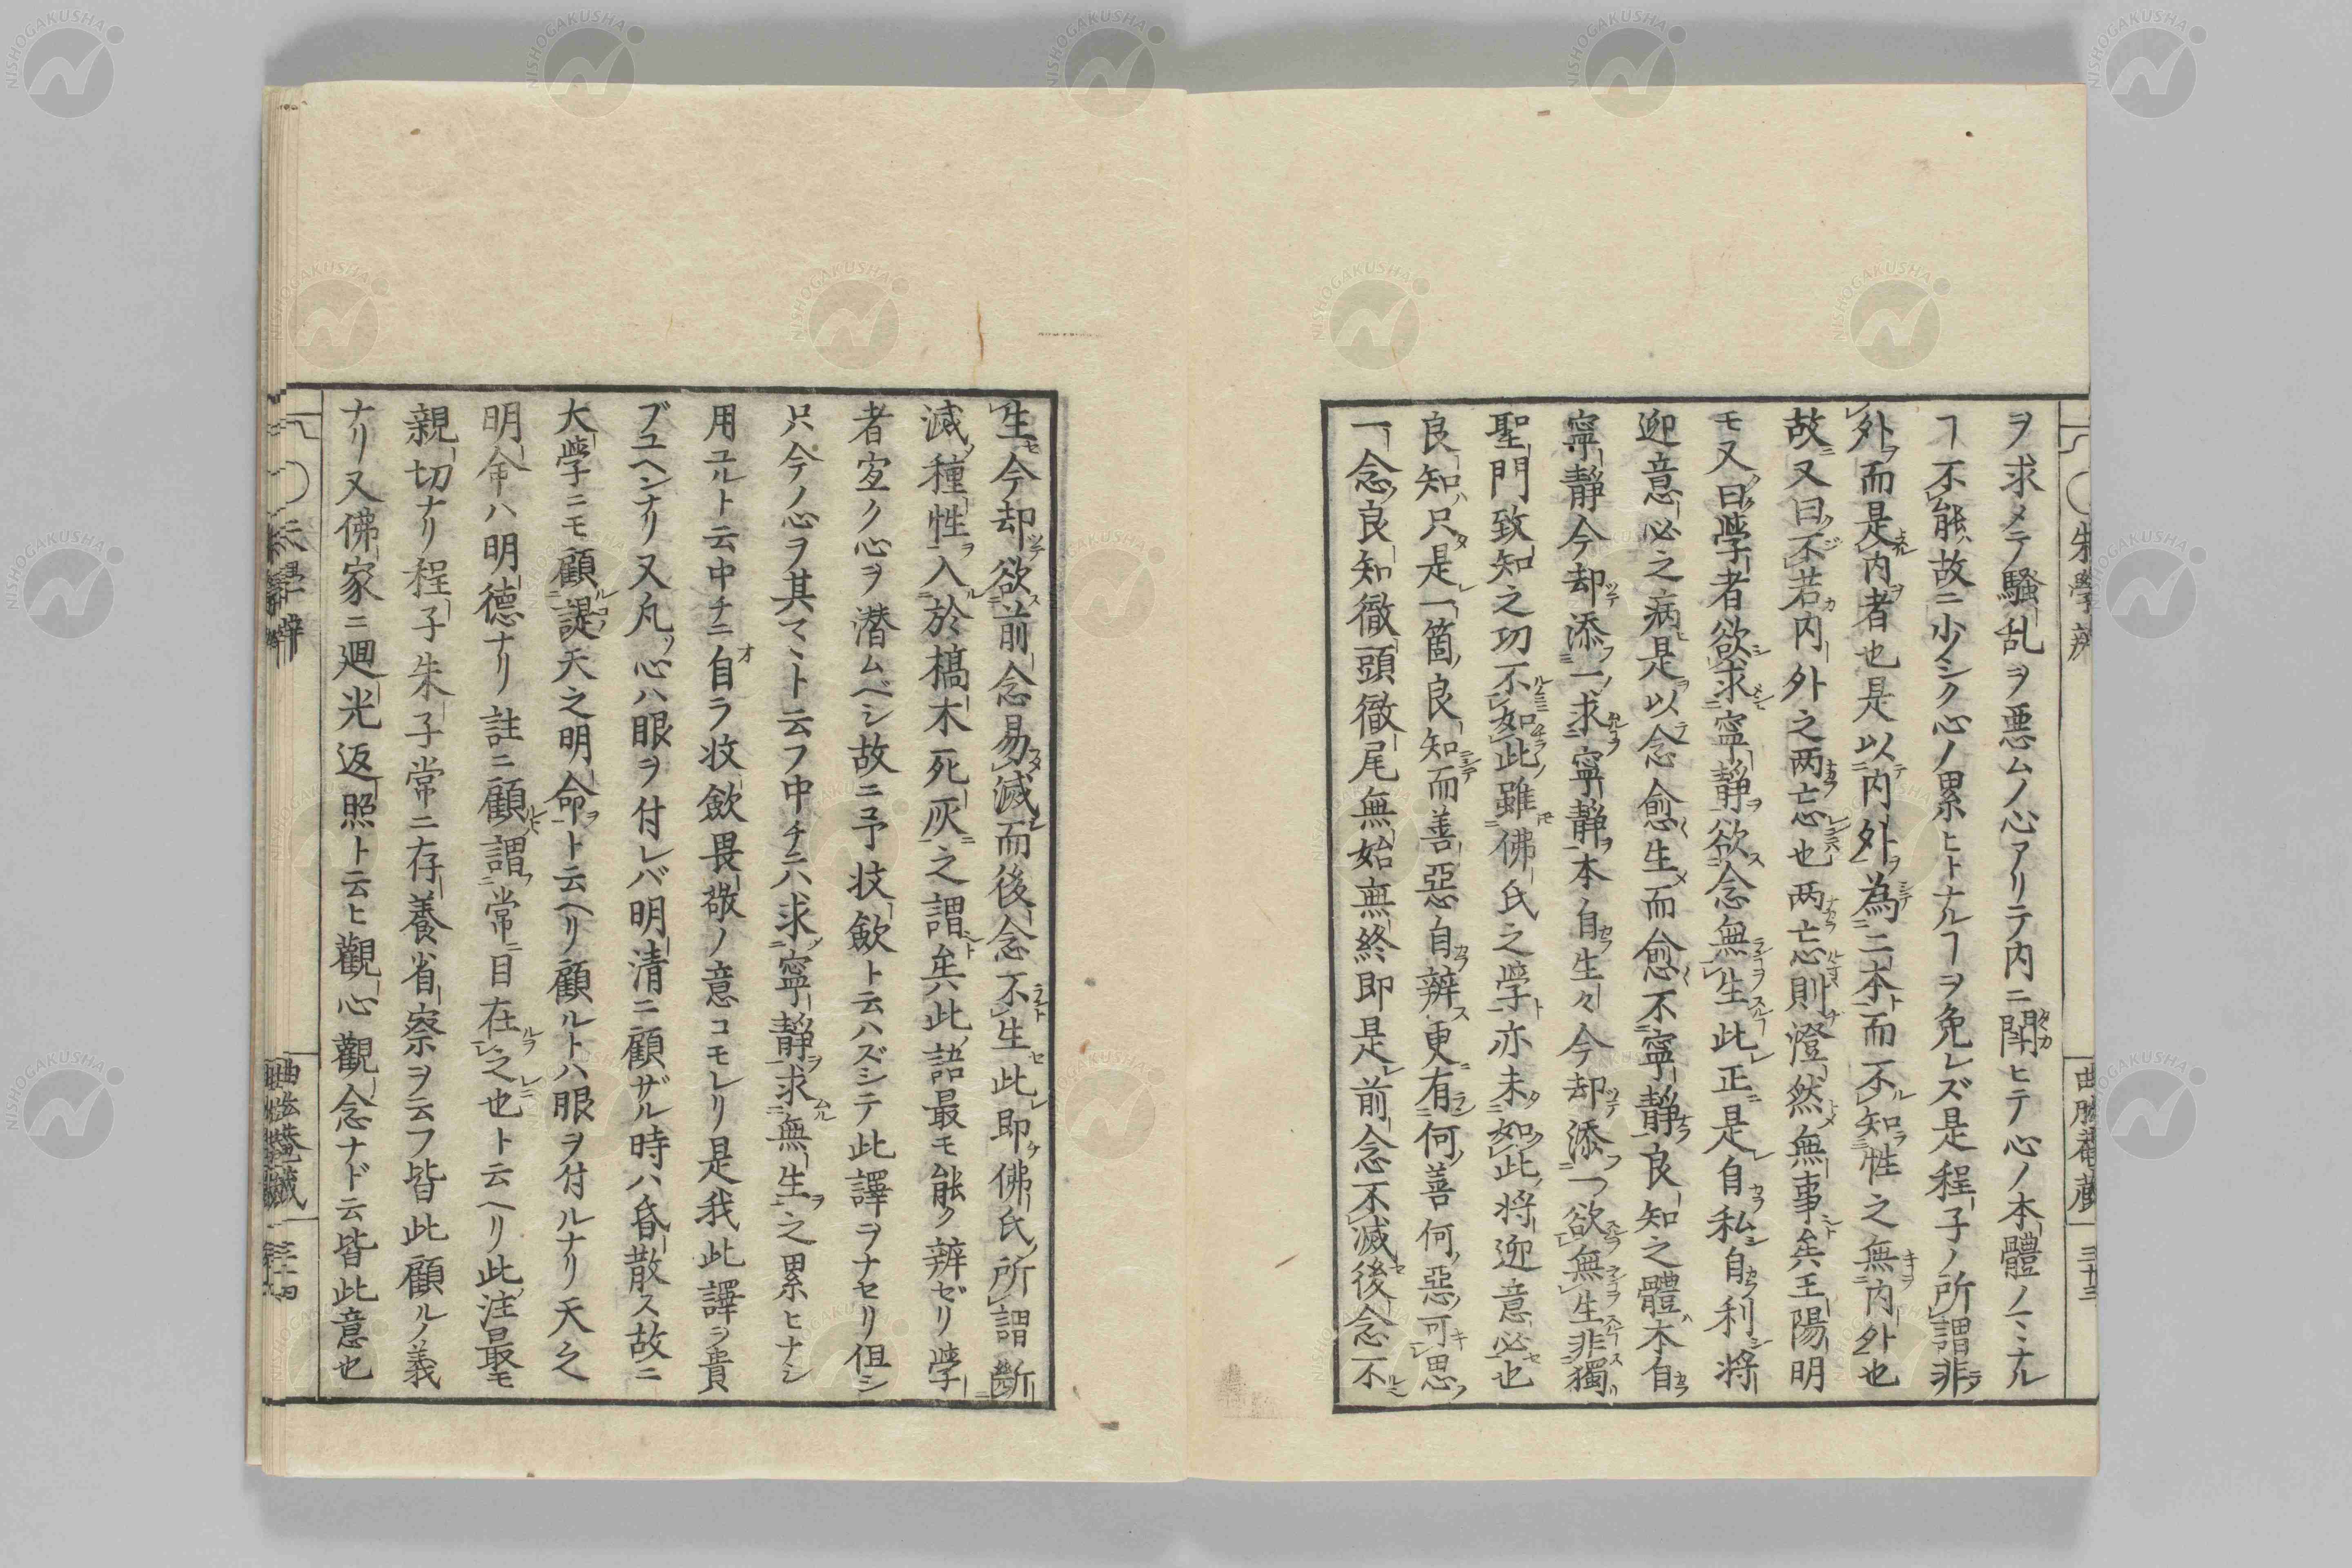 ヲ求メテ騷乱ヲ悪ムノ心アリテ内ニ閗ヒテ心ノ本體ノマヽナル
ヿ不能故ニ少シク心ノ累ヒトナルヿヲ免レズ是程子ノ所謂非
外而是内者也是以内外為二本而不知性之無内外也
故又曰不若内外之两忘也两忘則澄然無事矣王陽明
モ又曰學者欲求寧静欲念無生此正是自私自利将
迎意必之病是以念愈生而愈不寧静良知之體本自
寧静今却添一求寧静本自生々今却添一欲無生非獨
聖門致知之功不如此雖佛氏之學亦未如此将迎意必也
良知只是一箇良知而善惡自辨更有何善何惡可思
一念良知徹頭徹尾無始無終即是前念不滅後念不
生今却欲前念易滅而後念不生此即佛氏所謂斷
滅種性入於槁木死灰之謂矣此語最モ能ク辨ゼリ學
者宜ク心ヲ潜ムベシ故ニ予收斂ト云ハズシテ此譯ヲナセリ但シ
只今ノ心ヲ其マヽト云フ中チニハ求寧静求無生之累ヒナシ
用ユルト云中チニ自ラ收斂畏敬ノ意コモレリ是我此譯ヲ貴
ブユヘンナリ又凡ソ心ハ眼ヲ付レバ明清ニ顧ザル時ハ昏散ス故ニ
大學ニモ顧諟天之明命ト云ヘリ顧ルトハ眼ヲ付ルナリ天之
明命ハ明德ナリ註ニ顧謂常目在之也ト云ヘリ此注最モ
親切ナリ程子朱子常ニ存養省察ヲ云フ皆此顧ルノ義
ナリ又佛家ニ廻光返照ト云ヒ觀心觀念ナド云皆此意也